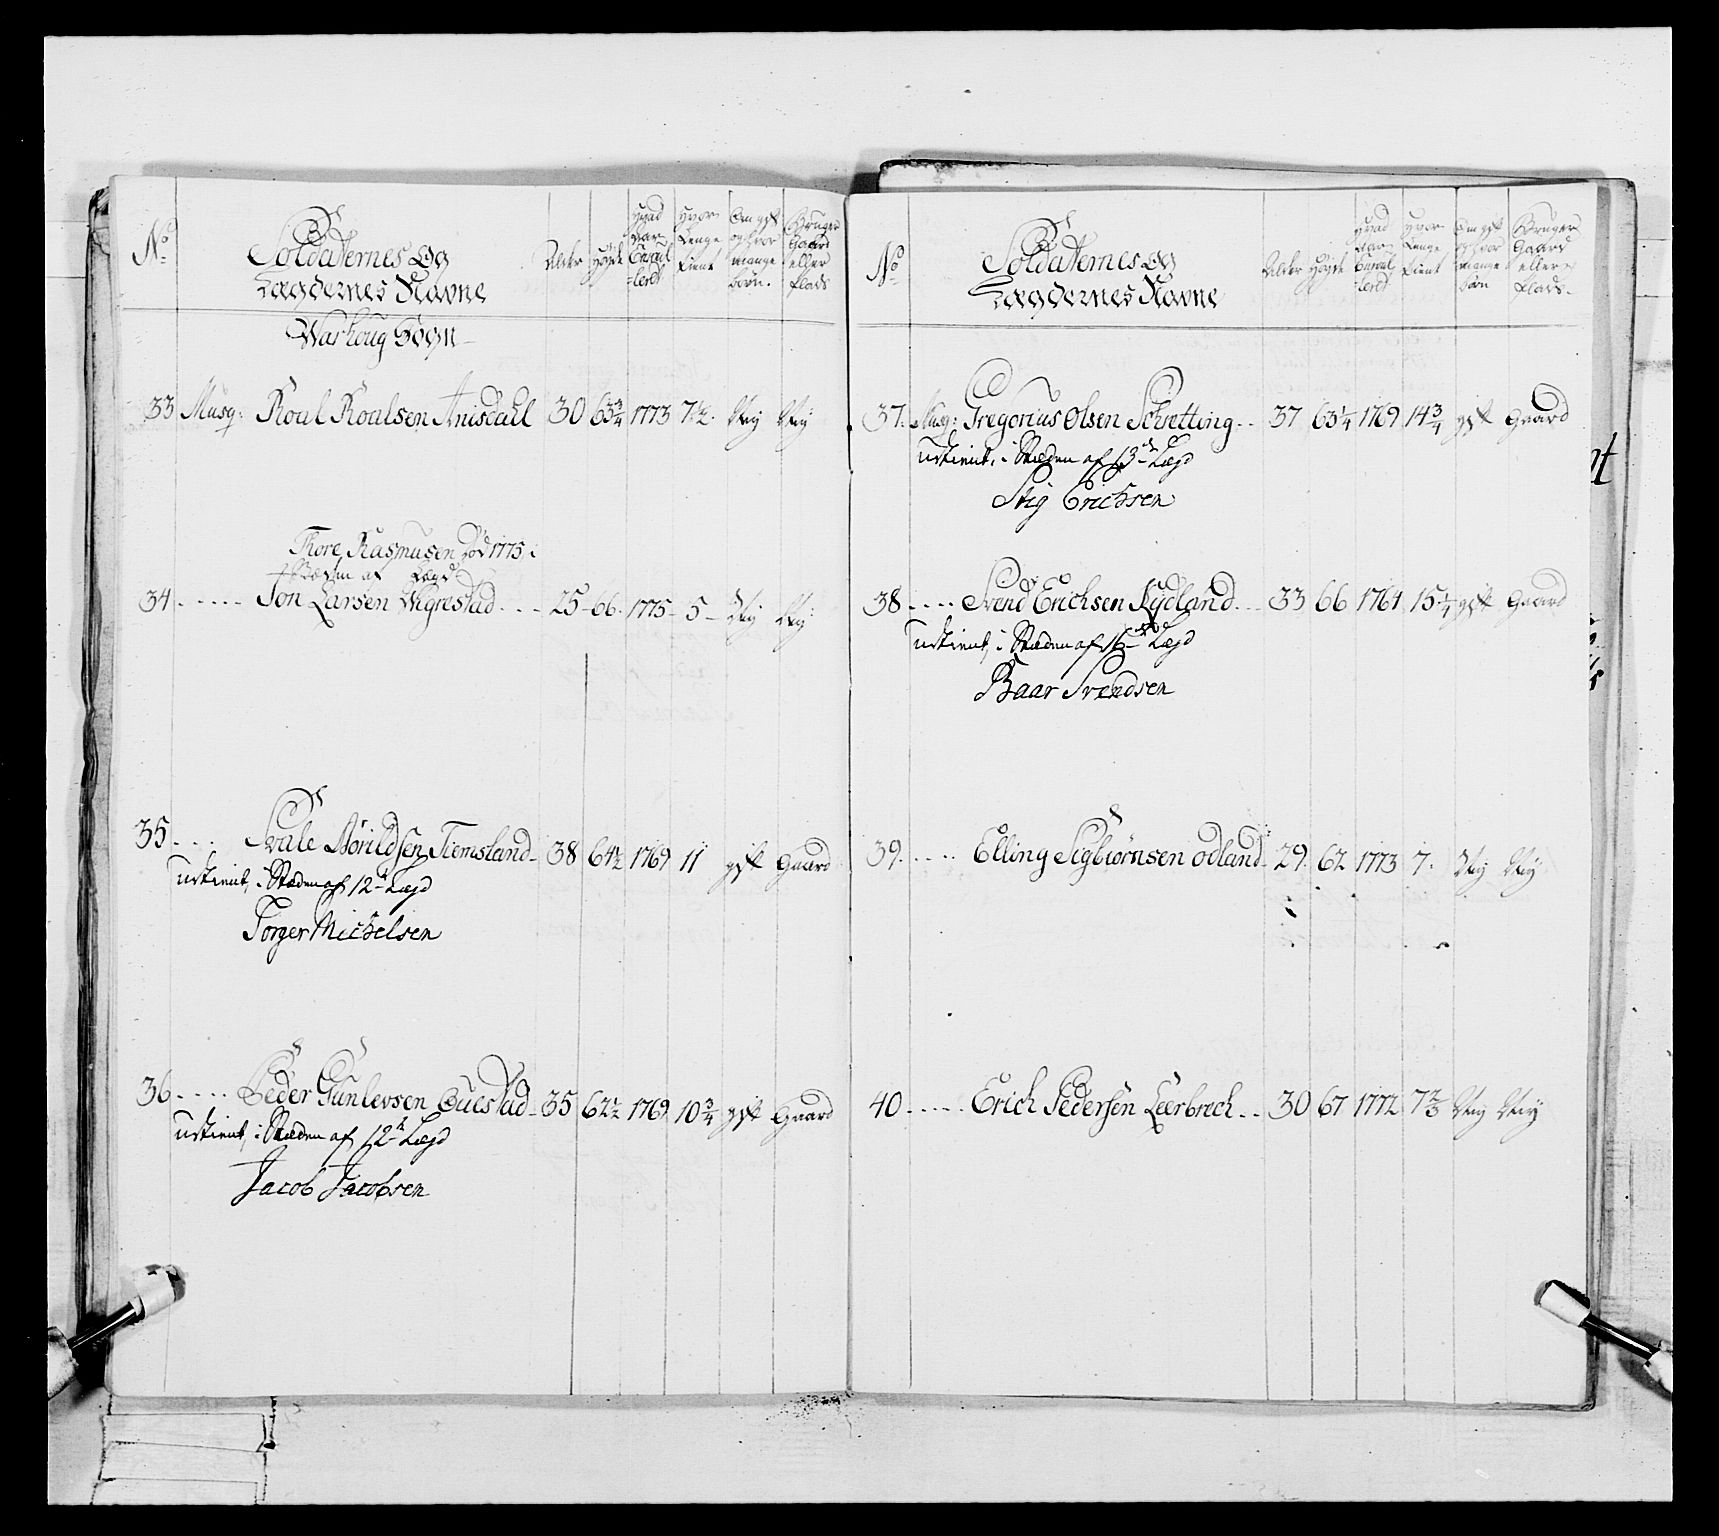 No
Soldaternes og
Lægdernes Navne
Alder
Høyde
Hvad
Aar
Enroul
=leret
Hvor
Lenge
tient
Om gift
og hvor
mange
børn.
Bruger
Gaard
eller
Plads
Warhoug Sogn
33 Musq: Roal Roalsen Anisdahl 30 63 3/4 1773 7 1/2 Ney Ney
Thore Rasmusen død 1775, i
Stæden af Lægd
34 - - - - - Jon Larsen Wigrestad - - - 25 66 1775 5 Ney Ney
35 - - - Svale Nørildsen Tiemsland 38 64 1/2 1769 11 gift Gaard
udtient, i Stæden af 12te Lægd
Torger Michelsen
36 - - - - Peder Gunlevsen Buestad 35 62 1/2 1769 10 3/4 gift Gaard
udtient, i Stæden af 12te Lægd
Jacob Jacobsen
No
Soldaternes og
Lægdernes Navne
Alder
Høyde
Hvad
Aar
Enroul
=leret
Hvor
Lenge
tient
Om gift
og hvor
mange
børn
Bruger
Gaard
eller
Plads.
37. Musq: Gregorius Olsen Schretting - - 37 63 1/4 1769 14 3/4 gift Gaard
udtient, i Stæden af 13de Lægd
Stig Erichsen
38 - - - - Svend Erichsen Rydland - - 33 66 1764 15 1/4 gift Gaard
udtient, i Stæden af 16de Lægd
Baar Svendsen
39. - - - - Elling Sigbiørnsen Odland 29. 62 1773 7. Ney Ney
40 - - - - - Erich Pedersen Leerbrech - - 30 67 1772 7 2/3 Ney Ney